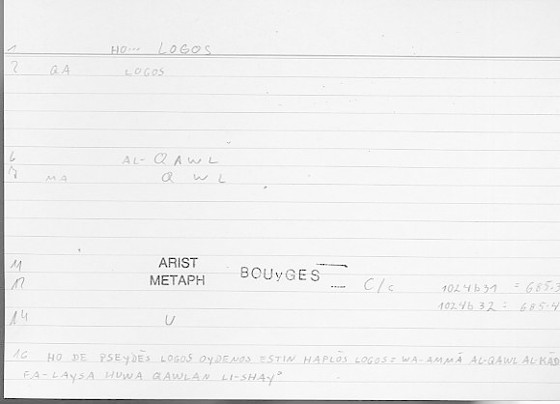 1 HO... LOGOS
2 QA LOGOS
6 AL-QAWL
7 MA QWL
11 ARIST BOUyGES
12 METAPH C/c 1024b31 = 685.3
1024b32 = 685.4
14 V
16 HO DE PSEYDĒS LOGOS OYDENOS ESTIN HAPLŌS LOGOS = WA-AMMĀ AL-QAWL AL-KĀD
FA-LAYSA HUWA QAWLAN LI-SHAY°